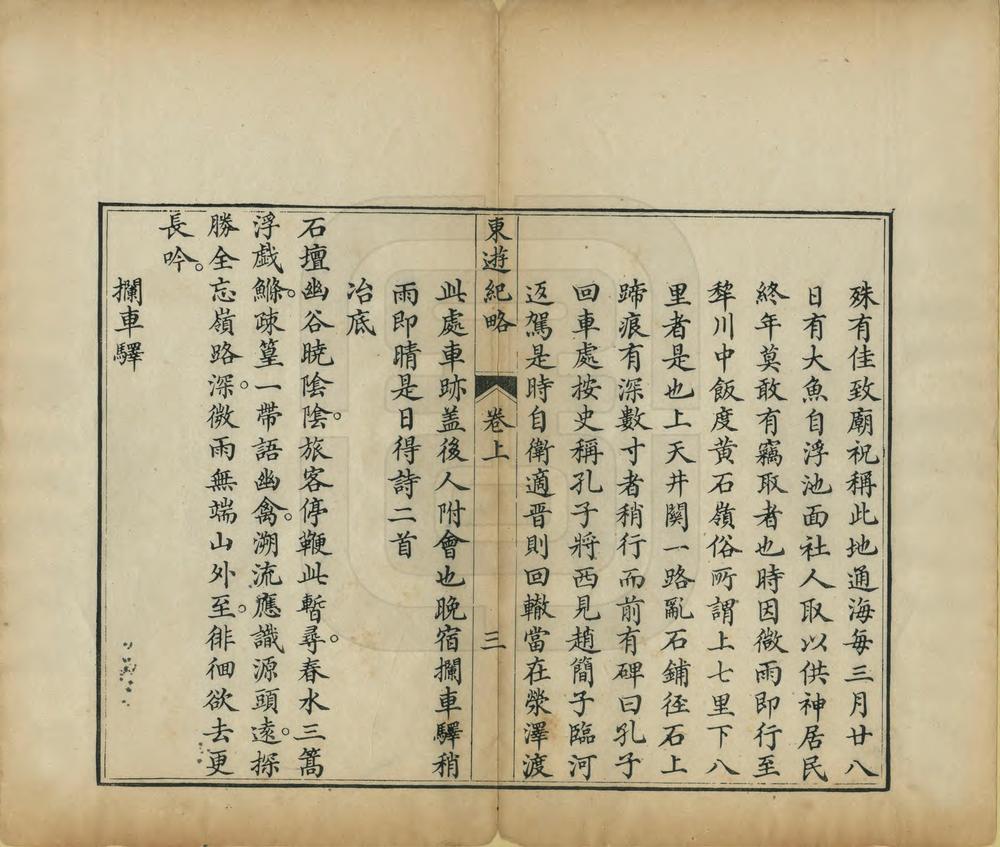 殊有佳致廟祝稱此地通海每三月廿八
日有大魚自浮池面社人取以供神居民
終年莫敢有竊取者也時因微雨即行至
犂川中飯度黃石嶺俗所謂上七里下八
里者是也上天井關一路亂石鋪徑石上
蹄痕有深數寸者稍行而前有碑曰孔子
回車處按史稱孔子將西見趙簡子臨河
返駕是時自衛適晉則回轍當在滎澤渡
東遊紀略 卷上 三
此處車跡蓋後人附會也晚宿攔車驛稍
雨即晴是日得詩二首
冶底
石壇幽谷曉陰陰。旅客停鞭此暫尋。春水三篙
浮戲鰷。疎篁一帶語幽禽。溯流應識源頭遠。探
勝全忘嶺路深。微雨無端山外至。徘徊欲去更
長吟。
攔車驛